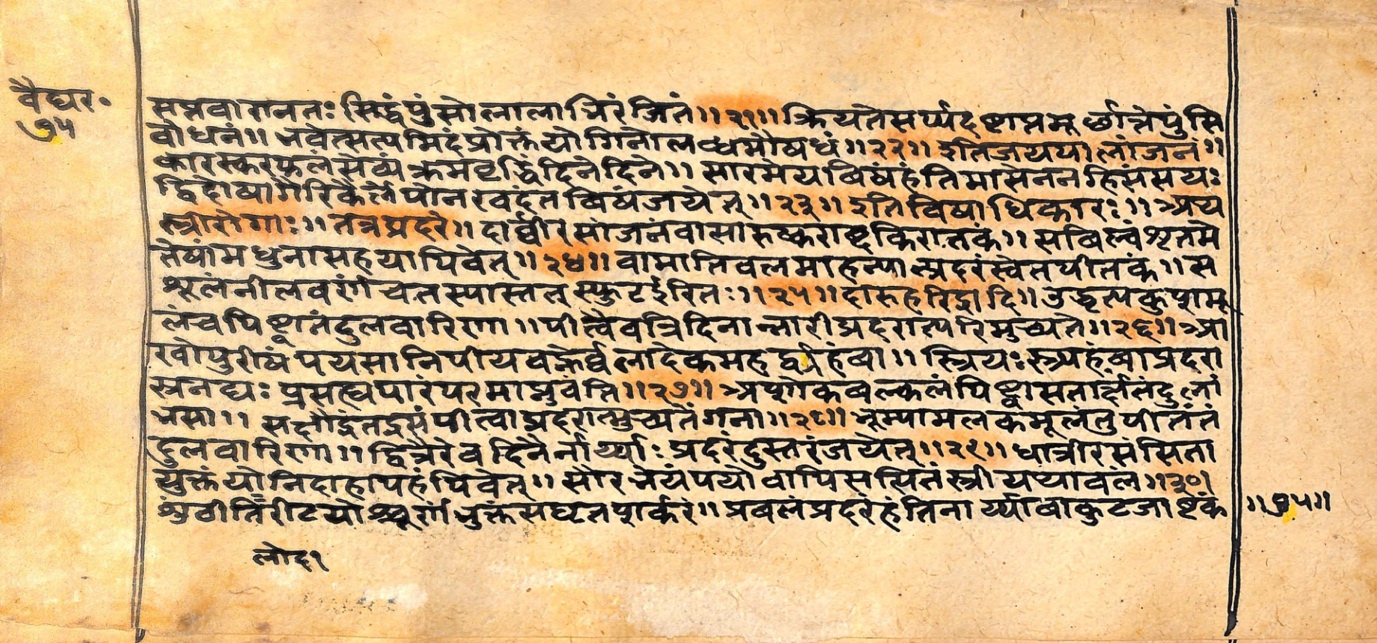 वैद्यर॰
७५
सप्तवारानतः सिद्धं पुंसो लालाभिरंजितं॥२१॥ क्रियते सर्प्पदष्टाप्तमूर्छान्ते पुंसि
बोधनं॥ भवेत्सत्यमिदं प्रोक्तं योगिनो लब्धमौषधं॥२२॥ इति जयपालांजनं॥
कारस्करफलं सेव्यं क्रमवृद्धिं दिने दिने॥ सारमेयविषं हंति मासेनैन हि संसयः
द्विहरिद्रा गैरिकैर्लेपो नखदंतविषं जयेत्॥२३॥ इति विषाधिकारः॥ अथ
स्त्रीरोगाः॥ तत्र प्रदरे॥ दार्व्वीरसांजनं वासारुष्कराष्टकिरातकं॥ सबिल्वं शृतमे
तेषां मधुना सह यापिवेत्॥२४॥ वामातिवलमाहन्यात्प्रदरं स्वेतपीतकं॥ स
शूलं नीलवर्णं च तस्यास्तत् स्फुट ईरितः॥२५॥ दारुहरिद्रादि॥ उद्धृत्य कुशमू
लं च पिष्ट्वा तंदुलवारिणा॥ पीत्वैव त्रिदिनान्नारी प्रदरात्परिमुच्यते॥२६॥ आ
खोः पुरीषं पयसा निपीय वह्नेर्व्वलादेकमहर्द्व्यहं वा॥ स्त्रियः स्त्र्यहं वा प्रदरा
स्रनद्यः प्रसह्य पारं परमाप्नुवन्ति॥२७॥ अशोकवल्कलं पिष्ट्वा सतार्क्षितंदुलां
भसा॥ सक्षौद्रं तद्रसं पीत्वा प्रदरान्मुच्यतेंगना॥२८॥ भूम्यामलकमूलं तु पीतं तं
दुलवारिणा॥ द्वित्रैरेव दिनैर्नार्य्याः प्रदरं दुस्तरं जयेत्॥२९॥ धात्रीरसं सिता
युक्तं योनिदाहापहं पिवेत्॥ सौरभेयं पयो वापि ससितं स्त्री यथावलं॥३०॥
शुंठीतिंरीटयोश्चूर्णं भुक्तं सघृतशर्करं॥ प्रबलं प्रदरं हंति नार्य्या वा कुटजाष्टकं
॥७५॥
लोद१